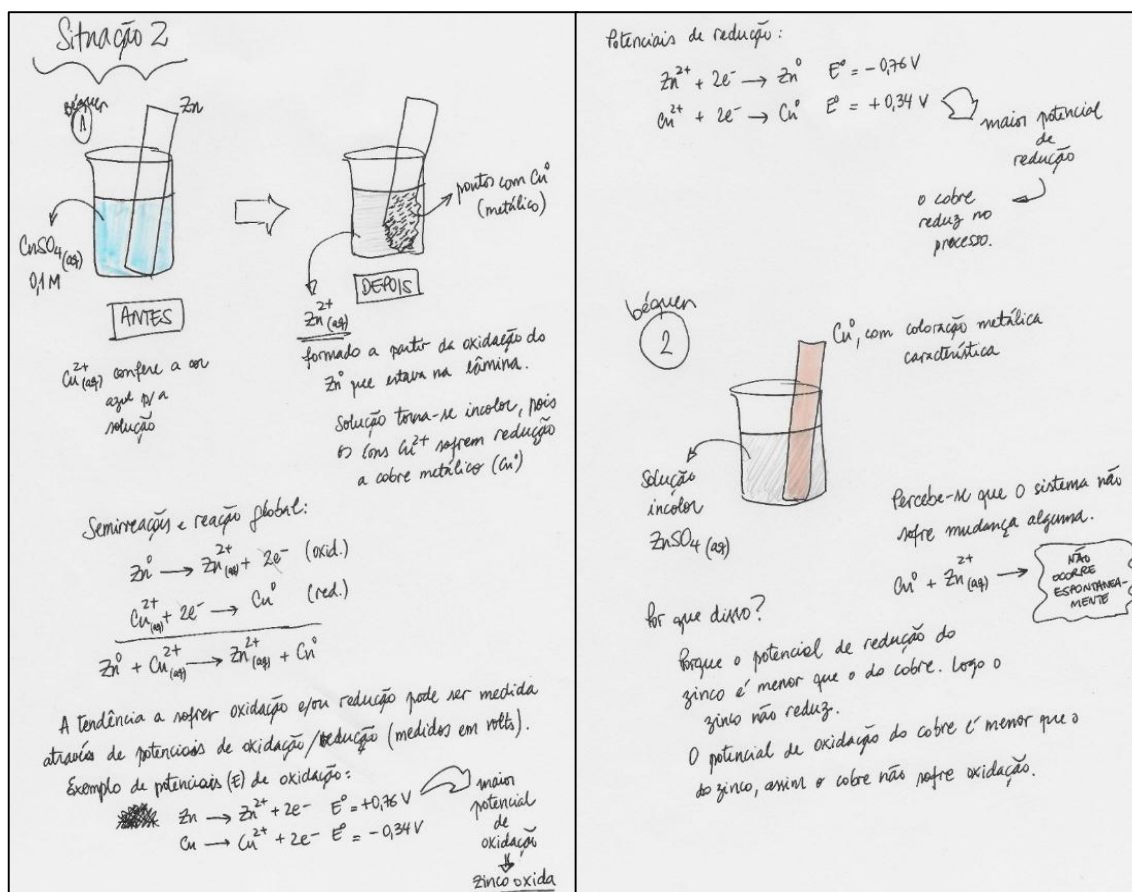 Situação 2
béquer
1
Zn
CuSO4(aq)
0,1M
ANTES
Cu2+(aq) confere a cor
azul p/ a
solução
pontos com Cu0
(metálico)
DEPOIS
Zn2+(aq)
formado a partir da oxidação do
Zn0 que estava na lâmina.
Solução torna-se incolor, pois
os íons Cu2+ sofrem redução
a cobre metálico (Cu0)
Semirreações e reação global:
Zn0 → Zn2+(aq) + 2e- (oxid.)
Cu2+(aq) + 2e- → Cu0 (red.)
Zn0 + Cu2+(aq) → Zn2+(aq) + Cu0
A tendência a sofrer oxidação e/ou redução pode ser medida
através de potenciais de oxidação/redução (medidos em volts).
Exemplo de potenciais (E) de oxidação:
Zn → Zn2+ + 2e- E0 = +0,76 V
Cu → Cu2+ + 2e- E0 = -0,34 V
maior
potencial
de
oxidação
zinco oxida
Potenciais de redução:
Zn2+ + 2e- → Zn0 E0 = -0,76 V
Cu2+ + 2e- → Cu0 E0 = +0,34 V
maior potencial
de
redução
o cobre
reduz no
processo.
béquer
2
Cu0, com coloração metálica
característica
Solução
incolor
ZnSO4(aq)
Percebe-se que o sistema não
sofre mudança alguma.
Cu0 + Zn2+(aq) →
NÃO
OCORRE
ESPONTANEA-
MENTE
Por que disso?
Porque o potencial de redução do
zinco é menor que o do cobre. Logo o
zinco não reduz.
O potencial de oxidação do cobre é menor que o
do zinco, assim o cobre não sofre oxidação.